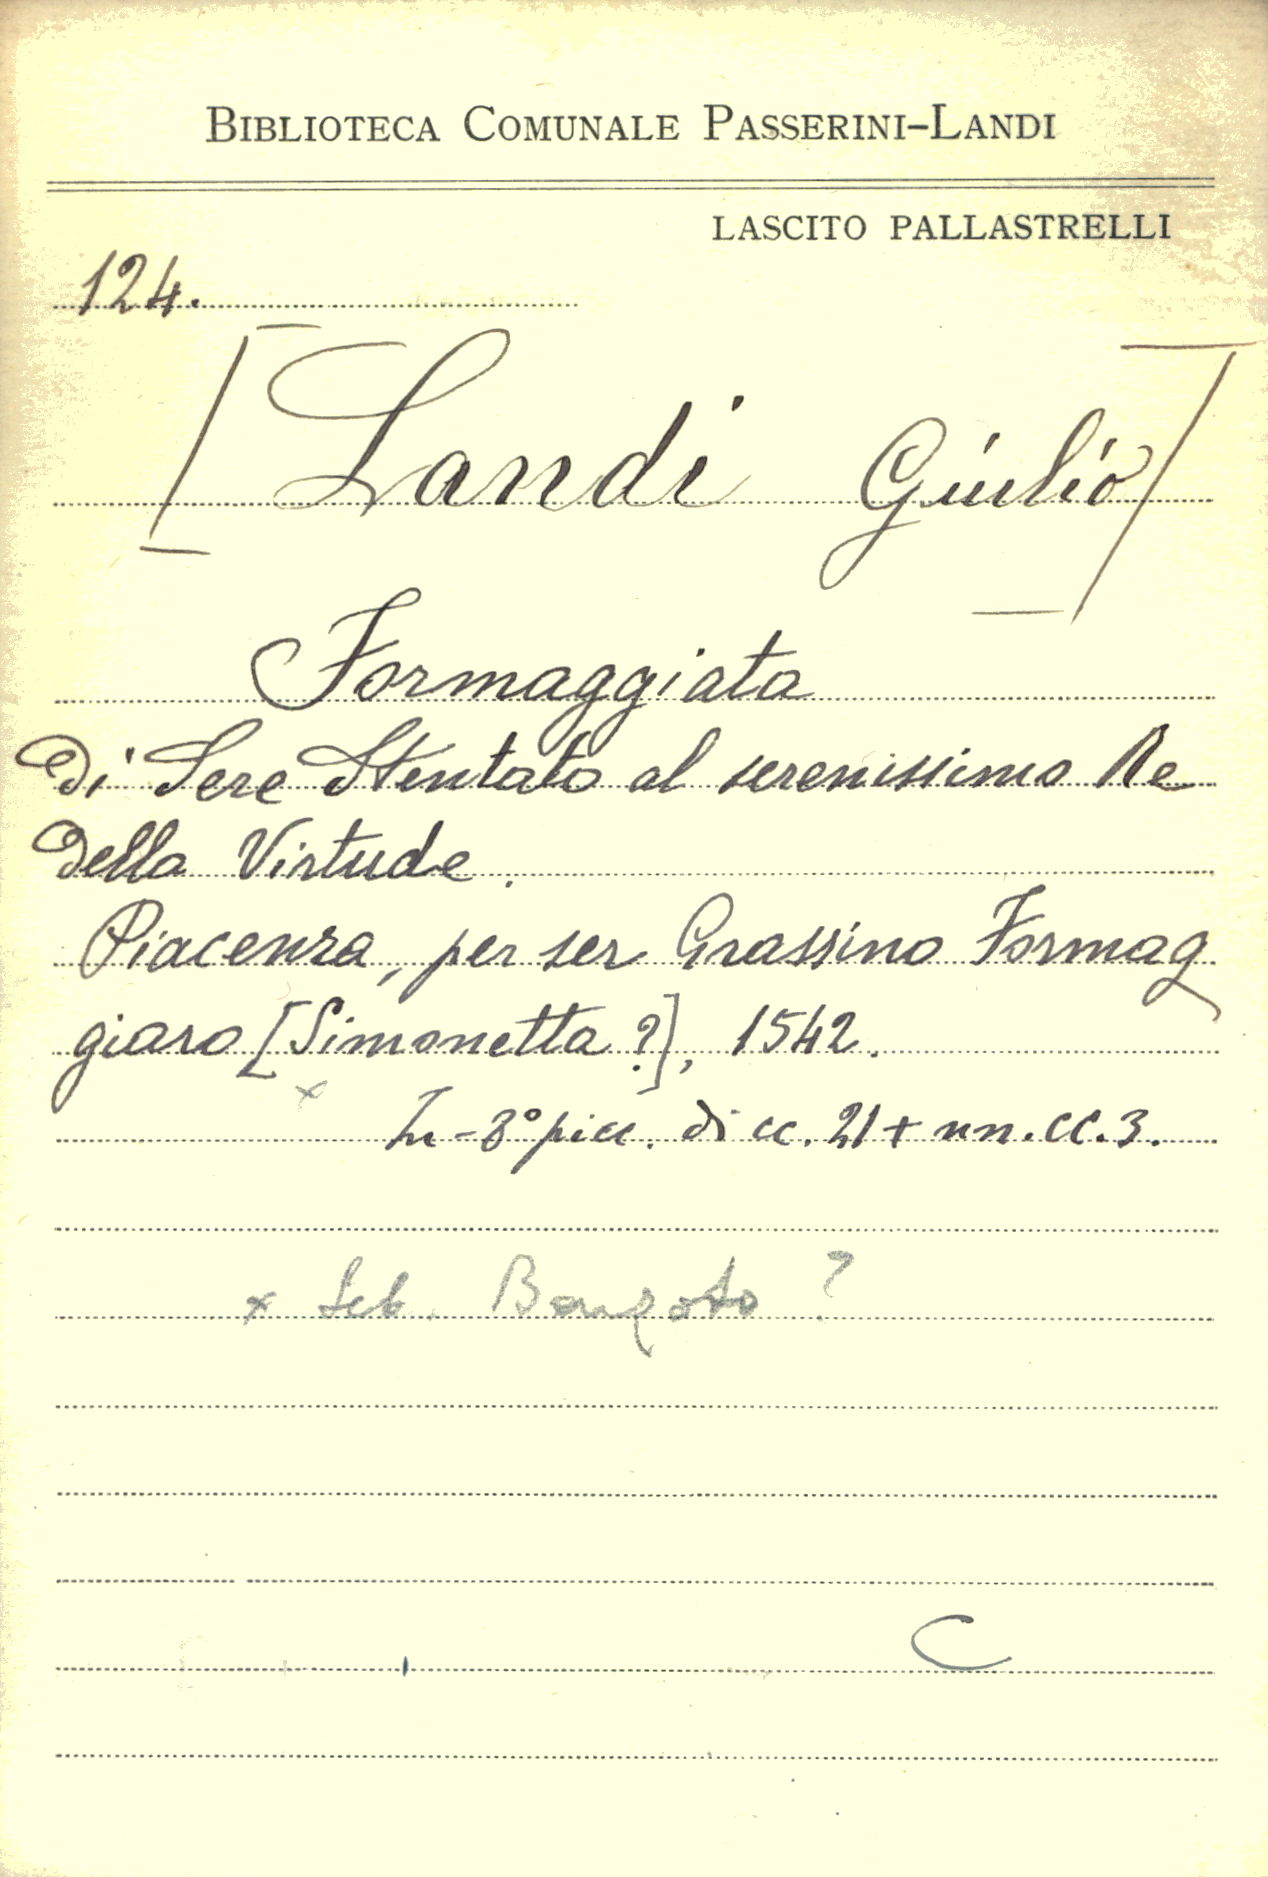 BIBLIOTECA COMUNALE PASSERINI-LANDI
LASCITO PALLASTRELLI
124.
[Landi Giulio]
Formaggiata
di Sere Stentato al serenissimo Re
della Virtude.
Piacenza, per ser Grassino Formag
giaro [Simonetta ?], 1542.
x
In-8° picc. di cc. 21 + nn. cc. 3.
x Seb. ?
C